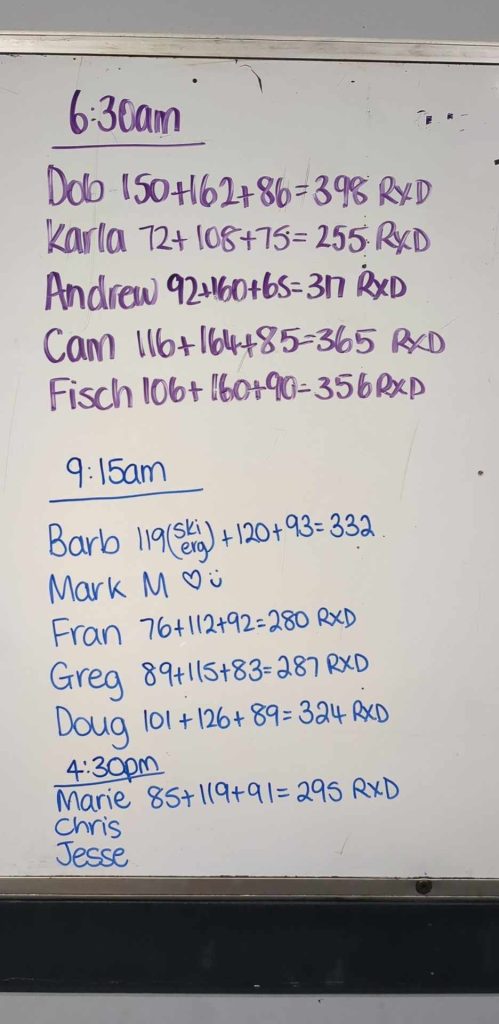 6:30am
Dob 150+162+86=398 RxD
Karla 72+108+75=255 RxD
Andrew 92+160+65=317 RxD
Cam 116+164+85=365 RxD
Fisch 106+160+90=356 RxD
9:15am
Barb 119(ski erg)+120+93=332
Mark M ♡ü
Fran 76+112+92=280 RxD
Greg 89+115+83=287 RxD
Doug 101+126+89=324 RxD
4:30pm
Marie 85+119+91=295 RxD
Chris
Jesse